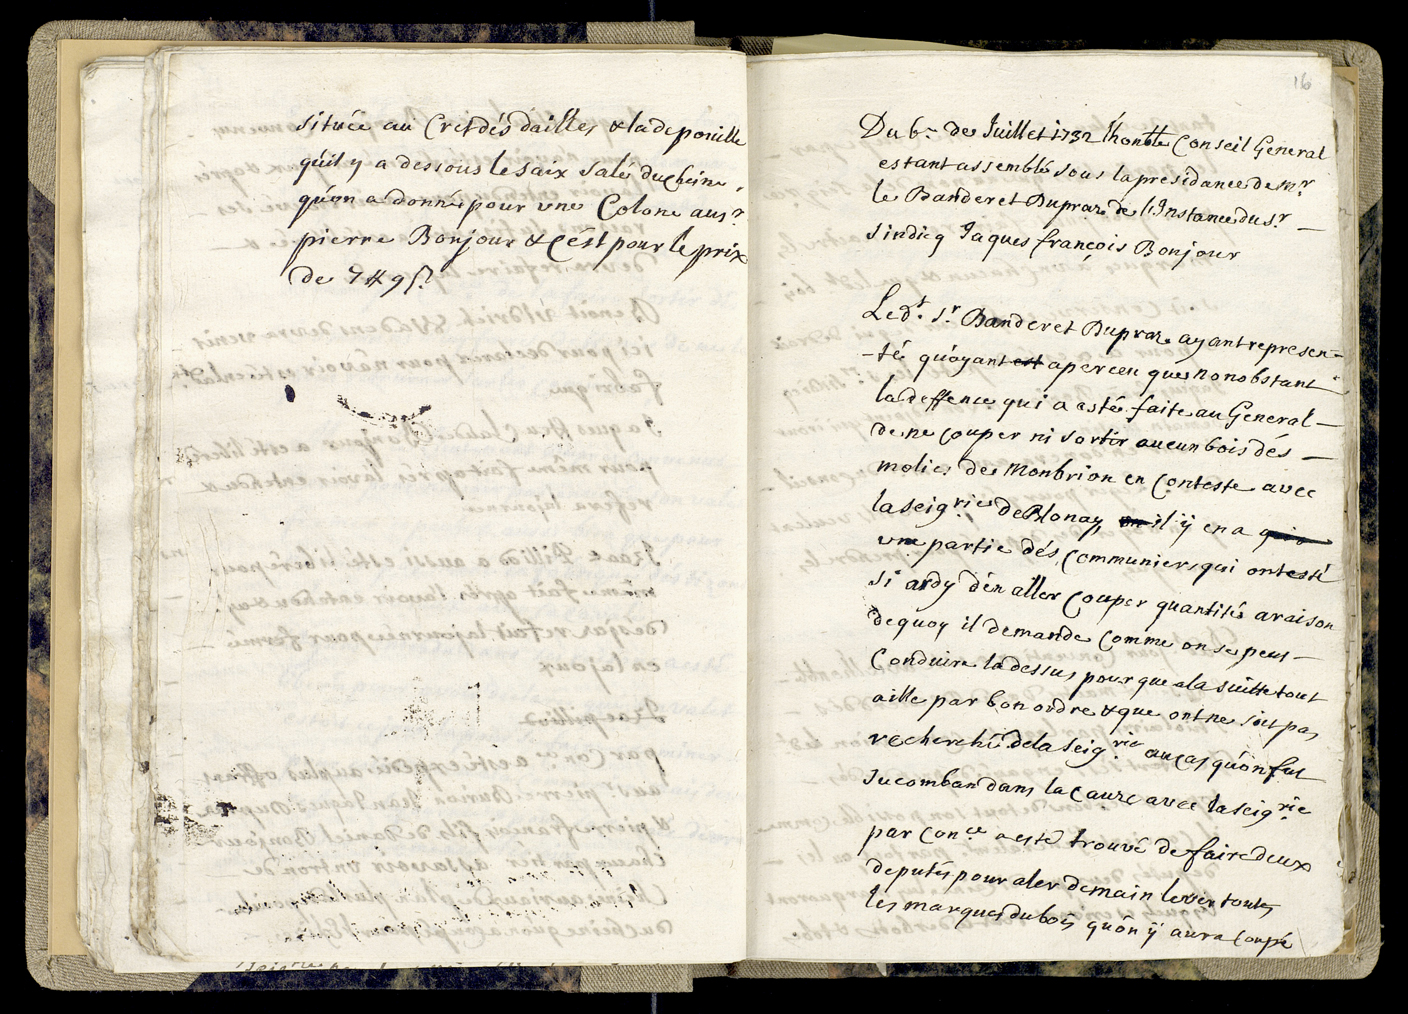 située au Cret dés dailles & la depouille
quil y a dessous le saix salé du chéne,
qu'on a donné pour une Colone au sr
pierre Bonjour & c'ést pour le prix
de 7 # 9 s.
16
Du 6e de Juillet 1732 l'honble Conseil Général
estant assemblé sous la présidance de mr
le Banderet Dupraz de l'Instance du sr
sindicq Jaques françois Bonjour
Ledt sr Banderet Dupraz ayant represen-
-té quayant est aperceu que nonobstant
la deffence qui a esté faite au General
de ne couper ni sortir aucun bois dés
molies de Monbrion en Conteste avec
la seigrie de Blonay, il y en a
une partie dés communiers qui ont esté
si ardy d'en aller couper quantité a raison
dequoy il demande comme on se peut
conduire la dessus, pour que a la suitte tout
aille par bon ordre & que ont ne soit pas
recherché de la seigrie au cas qu'on fut
sucomban dans la cauze avec la seigrie
par conce a esté trouvé de faire deux
deputés pour aler demain lever toutes
les marques du bois qu'on y aura coupé